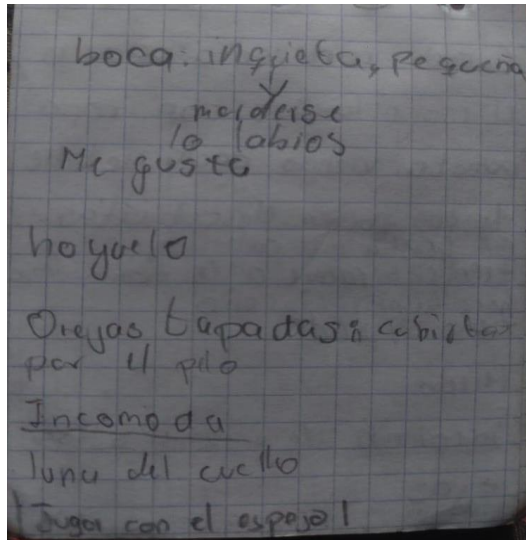 boca: inquieta, pequeña
morderse
lo labios
Me gusta
hoyuelo
Orejas tapadas: cubiertas
por el pelo
Incomoda
luna del cuello
Jugar con el espejo!